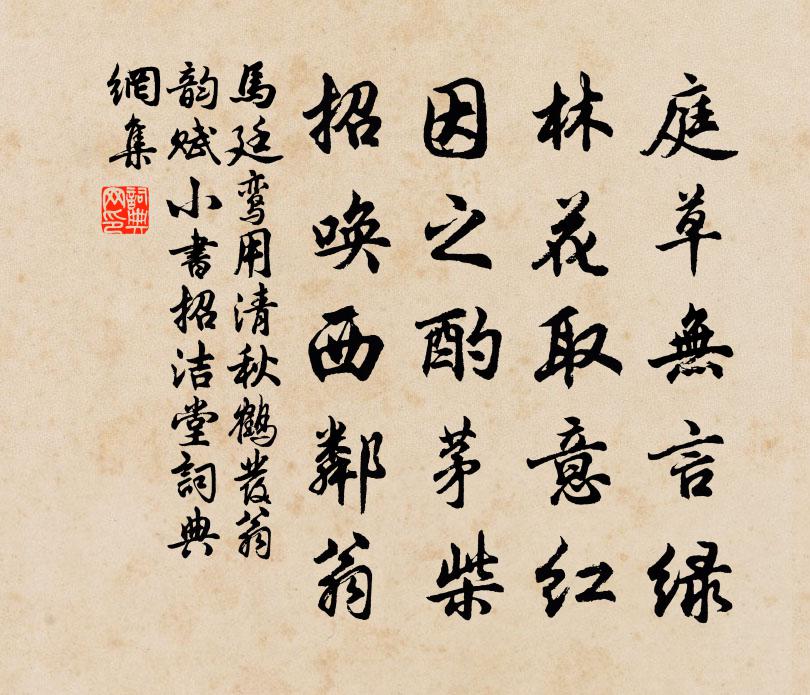 庭草無言绿
林花取意红
因之酌茅柴
招唤西鄰翁
馬廷鸾用清秋鶴發翁
韵赋小書招洁堂詞典
網集
詞典网印